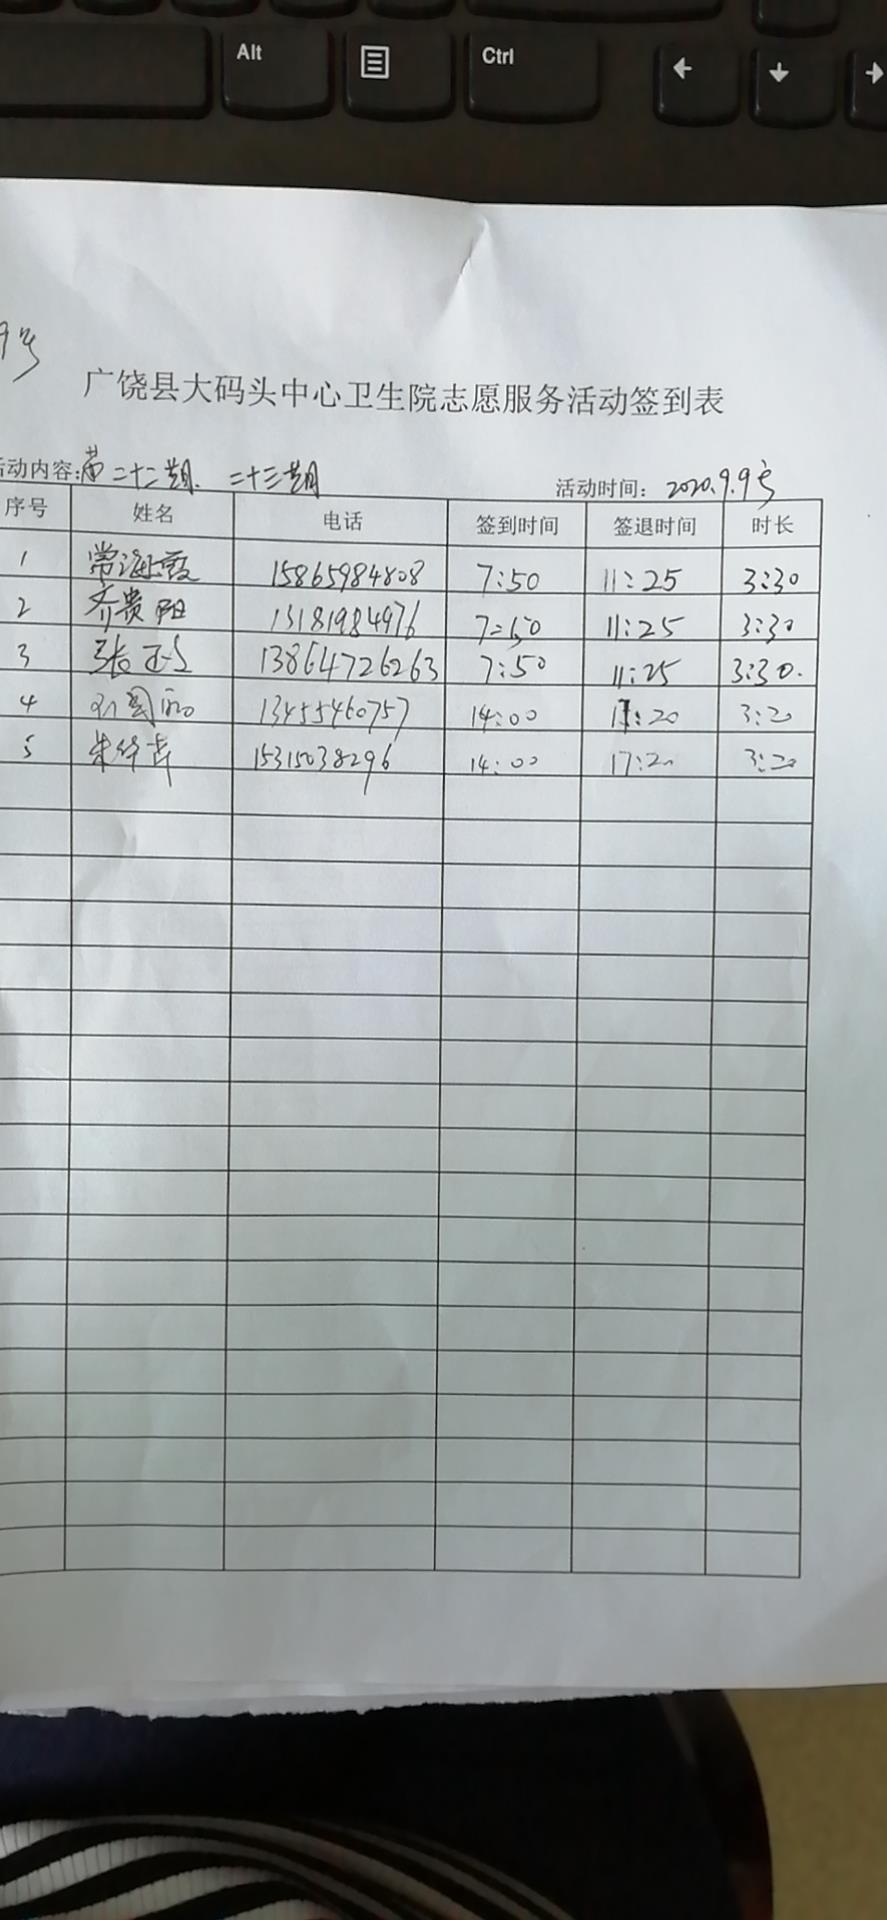 Alt
Ctrl
9号
广饶县大码头中心卫生院志愿服务活动签到表
活动内容:第二十二期. 二十三期 活动时间: 2020.9.9号
序号 姓名 电话 签到时间 签退时间 时长
1 常海霞 15865984808 7:50 11:25 3:30
2 齐贵阳 13181984976 7:50 11:25 3:30
3 张 13864726263 7:50 11:25 3:30.
4 13455460757 14:00 17:20 3:20
5 朱华 15315038296 14:00 17:20 3:20